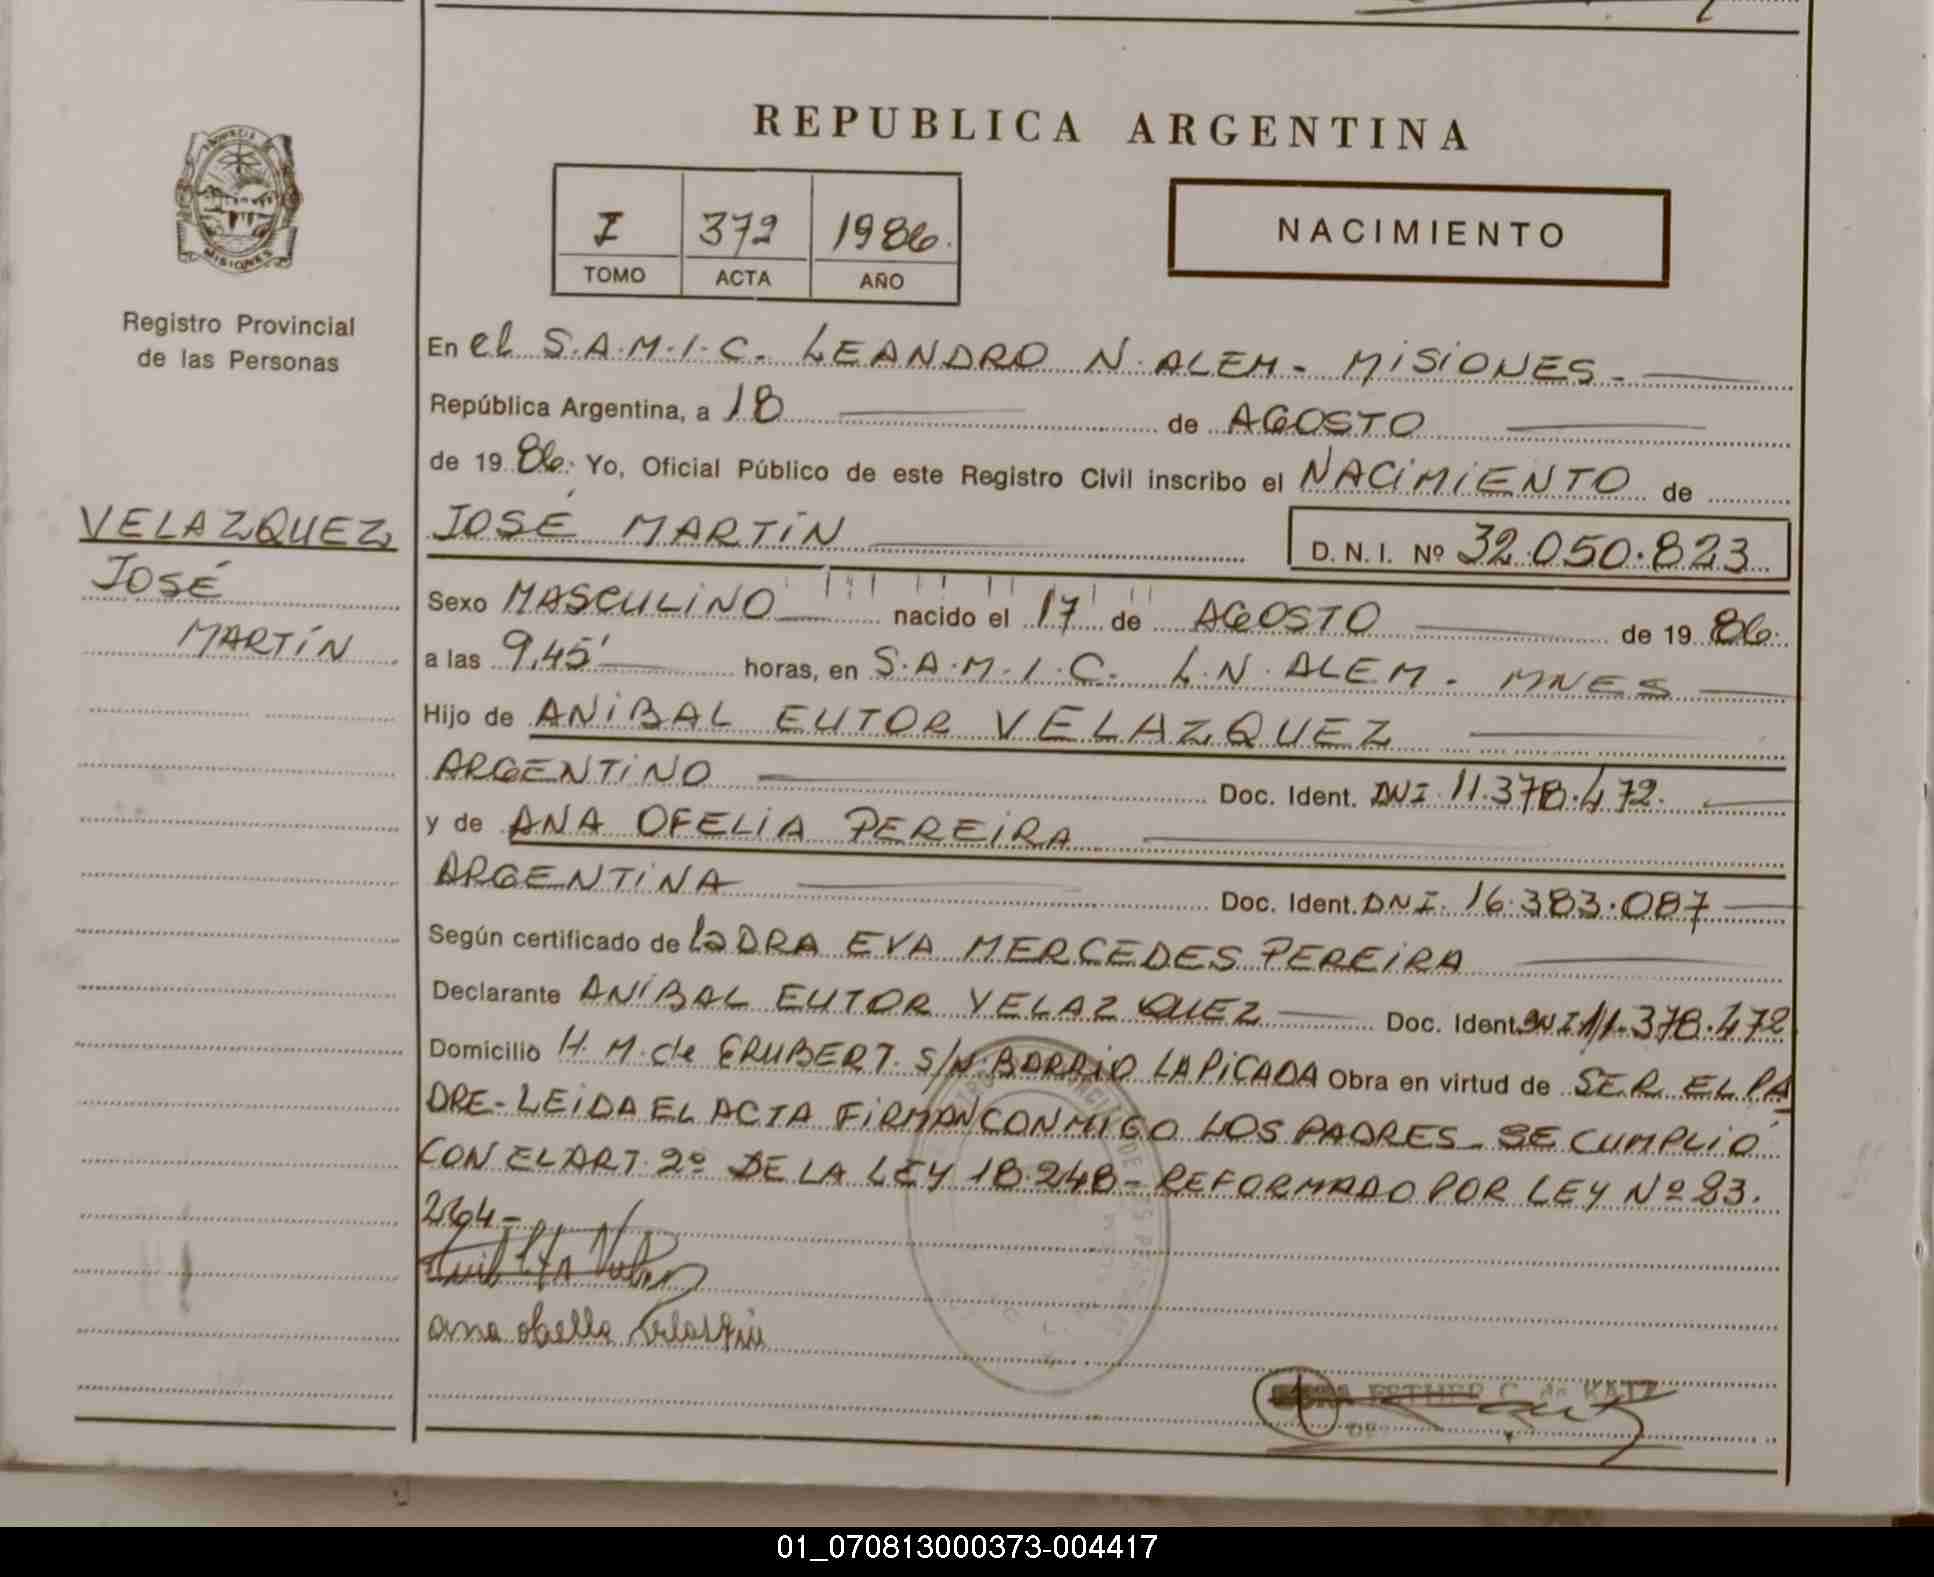 REPUBLICA ARGENTINA
PROVINCIA DE MISIONES
I 372 1986.
TOMO ACTA AÑO
NACIMIENTO
Registro Provincial
de las Personas
VELAZQUEZ
JOSÉ
MARTÍN
En el S.A.M.I.C. LEANDRO N. ALEM - MISIONES -
República Argentina, a 18 de AGOSTO
de 1986. Yo, Oficial Público de este Registro Civil inscribo el NACIMIENTO de
JOSÉ MARTÍN D. N. I. Nº 32.050.823
Sexo MASCULINO nacido el 17 de AGOSTO de 1986.
a las 9,45' horas, en S.A.M.I.C. L.N. ALEM. MNES
Hijo de ANIBAL EUTOR VELAZQUEZ
ARGENTINO Doc. Ident. DNI. 11.378.472.
y de ANA OFELIA PEREIRA
ARGENTINA Doc. Ident. DNI. 16.383.087
Según certificado de la DRA EVA MERCEDES PEREIRA
Declarante ANÍBAL EUTOR VELAZQUEZ Doc. Ident. DNI 11.378.472
Domicilio H. M. de GRUBERT. S/N. BARRIO LA PICADA Obra en virtud de SER EL PA
DRE - LEIDA EL ACTA FIRMAN CONMIGO LOS PADRES - SE CUMPLIÓ
CON EL ART. 2º DE LA LEY 18.248 - REFORMADO POR LEY Nº 23.
264 -
ESTHER C. de KATZ
01_070813000373-004417